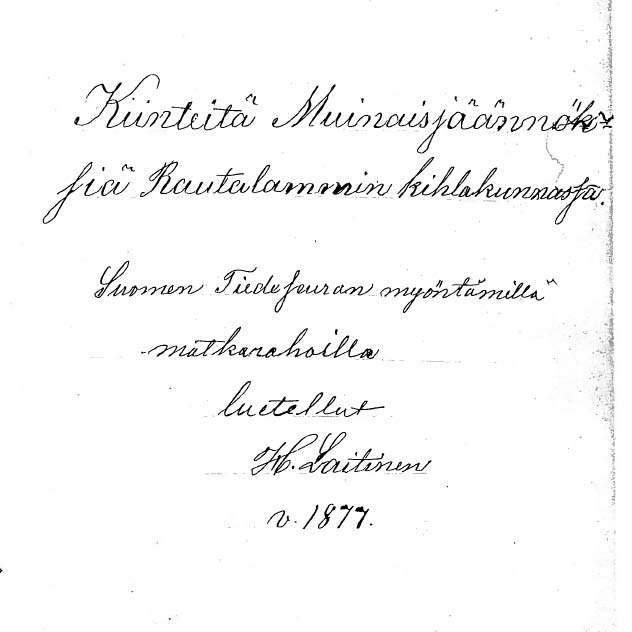 Kiinteitä Muinaisjäännök-
siä Rautalammin kihlakunnassa.
Suomen Tiedeseuran myöntämillä
matkarahoilla
luetellut
H. Laitinen
v. 1877.